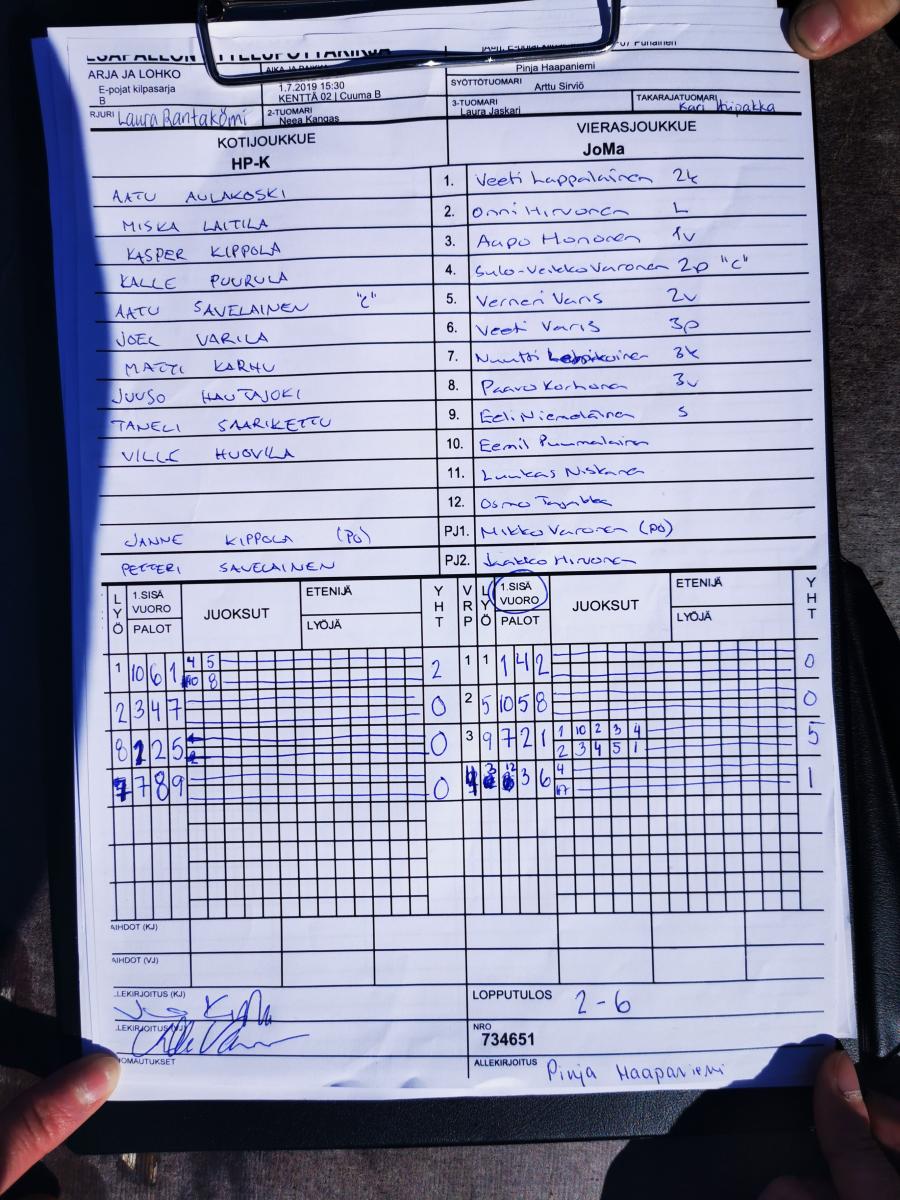 ARJA JA LOHKO
E-pojat kilpasarja
B
1.7.2019 15:30
KENTTÄ 02 | Cuuma B
Pinja Haapaniemi
SYÖTTÖTUOMARI
Arttu Sirviö
RJURI Laura Rantakömi
2-TUOMARI
Neea Kangas
3-TUOMARI
Laura Jaskari
TAKARAJATUOMARI
Kari
KOTIJOUKKUE
HP-K
VIERASJOUKKUE
JoMa
AATU AULAKOSKI 1. Veeti Lappalainen 2k
MISKA LAITILA 2. Onni Hirvonen L
KASPER KIPPOLA 3. Aapo Honoren 1v
KALLE PUURULA 4. Sulo-Veikko Varonen 2p "C"
AATU SAVELAINEN "C" 5. Verneri Varis 2v
JOEL VARILA 6. Veeti Varis 3p
MATTI KARHU 7. Nuutti 3k
JUUSO HAUTAJOKI 8. Paavo Korhonen 3v
TANELI SAARIKETTU 9. Eeli Niemeläinen S
VILLE HUOVILA 10. Eemil Puumalainen
11. Luukas Niskanen
12. Osmo
JANNE KIPPOLA (PJ) PJ1. Mikko Varonen (PJ)
PETTERI SAVELAINEN PJ2. Jaakko Hirvonen
LYÖ 1.SISÄ VUORO PALOT JUOKSUT ETENIJÄ LYÖJÄ YHT VRP LYÖ 1.SISÄ VUORO PALOT JUOKSUT ETENIJÄ LYÖJÄ YHT
1 10 6 1 4 5 2 1 1 1 4 2 0
10 8
2 3 4 7 0 2 5 10 5 8 0
8 1 2 5 0 3 9 7 2 1 1 10 2 3 4 5
2 3 4 5 1
7 7 8 9 0 4 3 12 3 6 4 1
AIHDOT (KJ)
AIHDOT (VJ)
LEKIRJOITUS (KJ)
LOPPUTULOS 2-6
LEKIRJOITUS (VJ)
NRO
734651
HOMAUTUKSET
ALLEKIRJOITUS Pinja Haapaniemi